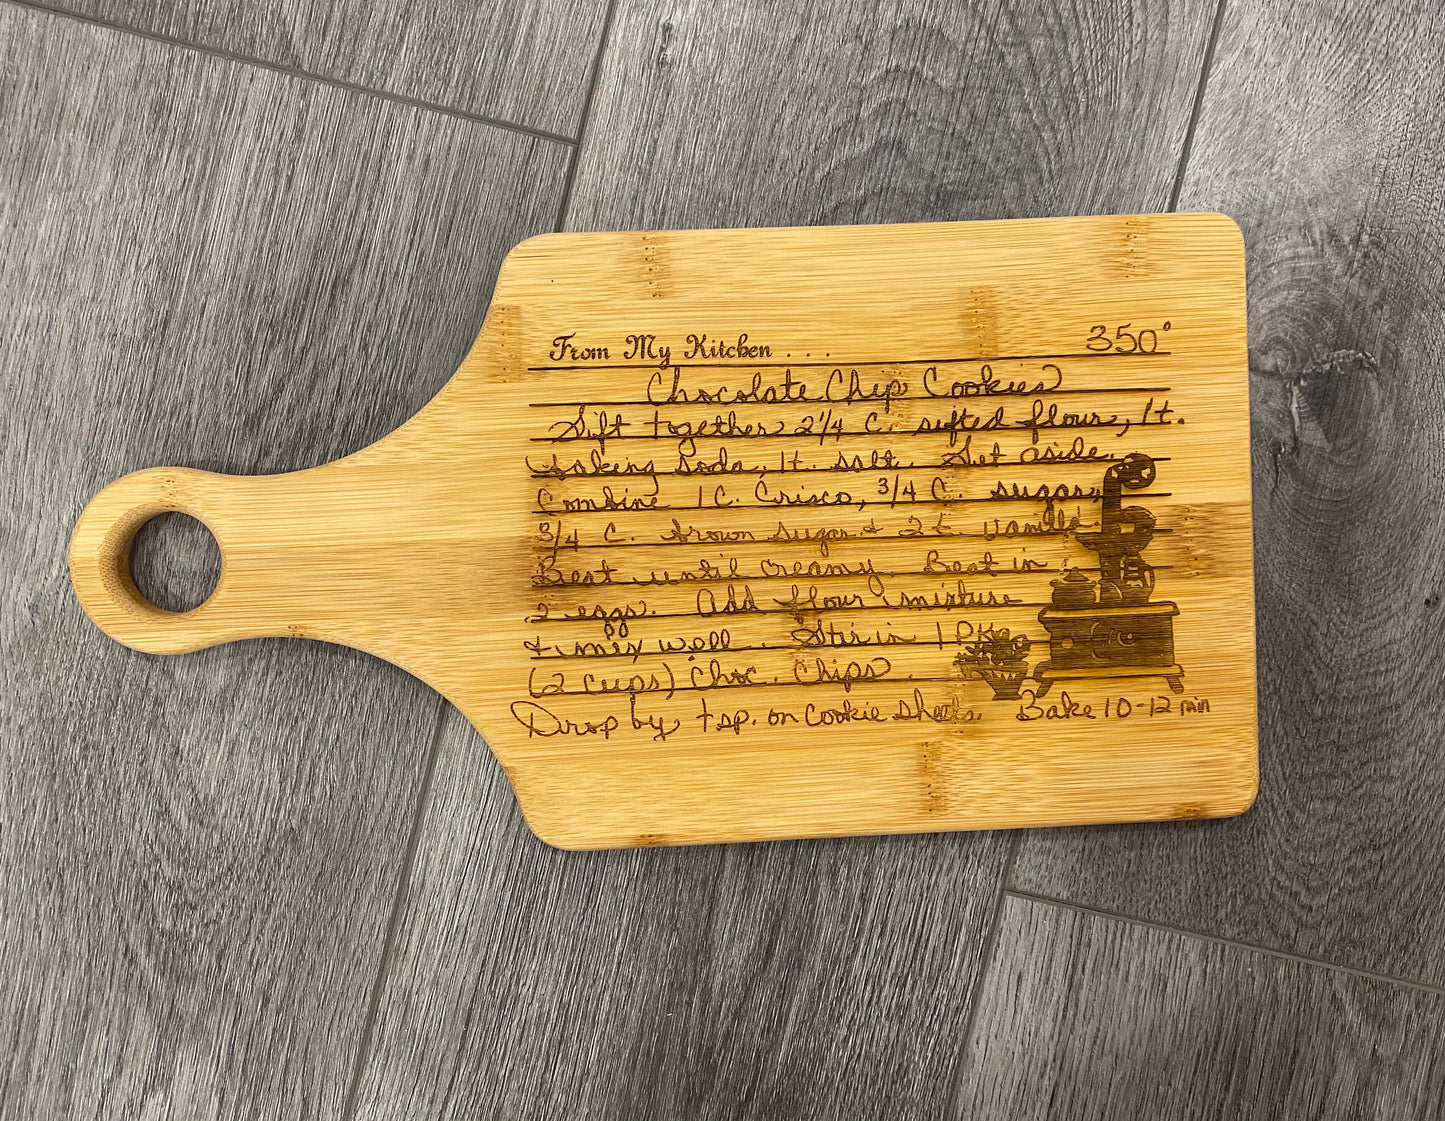 From My Kitchen . . . 350°
Chocolate Chip Cookies
Sift together 2 1/4 C. sifted flour, 1 t.
baking soda, 1 t. salt. Set aside.
Combine 1 C. Crisco, 3/4 C. sugar,
3/4 C. brown sugar & 2 t. vanilla.
Beat until creamy. Beat in
2 eggs. Add flour mixture
& mix well. Stir in 1 pkg.
(2 cups) Choc. Chips.
Drop by tsp. on cookie sheets. Bake 10-12 min